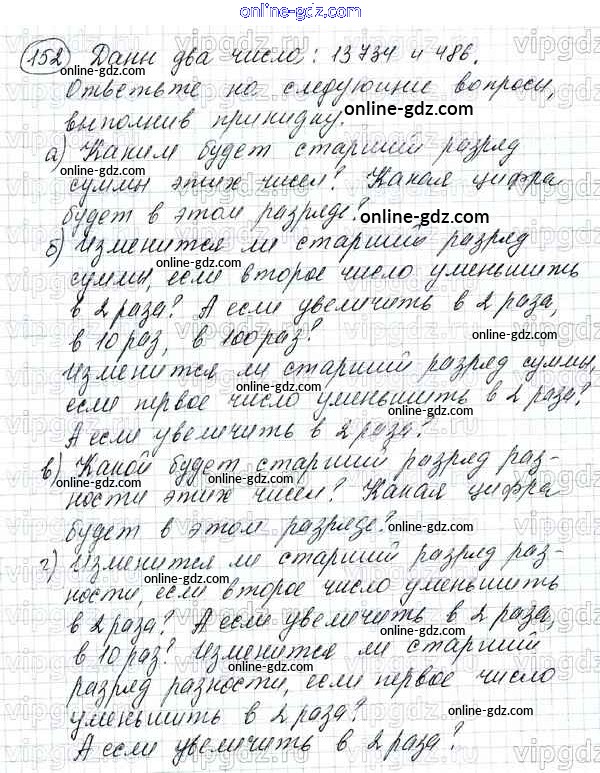 online-gdz.com
152 Даны два числа: 13734 и 486.
online-gdz.com
Ответьте на следующие вопросы,
online-gdz.com
выполнив прикидку.
online-gdz.com
а) Каким будет старший разряд
online-gdz.com
суммы этих чисел? Какая цифра
online-gdz.com
будет в этом разряде?
б) Изменится ли старший разряд
online-gdz.com
суммы, если второе число уменьшить
online-gdz.com
в 2 раза? А если увеличить в 2 раза,
online-gdz.com
в 10 раз, в 100 раз?
online-gdz.com
Изменится ли старший разряд суммы,
online-gdz.com
если первое число уменьшить в 2 раза?
online-gdz.com
А если увеличить в 2 раза?
online-gdz.com
в) Какой будет старший разряд раз-
online-gdz.com
ности этих чисел? Какая цифра
online-gdz.com
будет в этом разряде?
online-gdz.com
г) Изменится ли старший разряд раз-
online-gdz.com
ности, если второе число уменьшить
online-gdz.com
в 2 раза? А если увеличить в 2 раза,
online-gdz.com
в 10 раз? Изменится ли старший
online-gdz.com
разряд разности, если первое число
online-gdz.com
уменьшить в 2 раза?
online-gdz.com
А если увеличить в 2 раза?
online-gdz.com